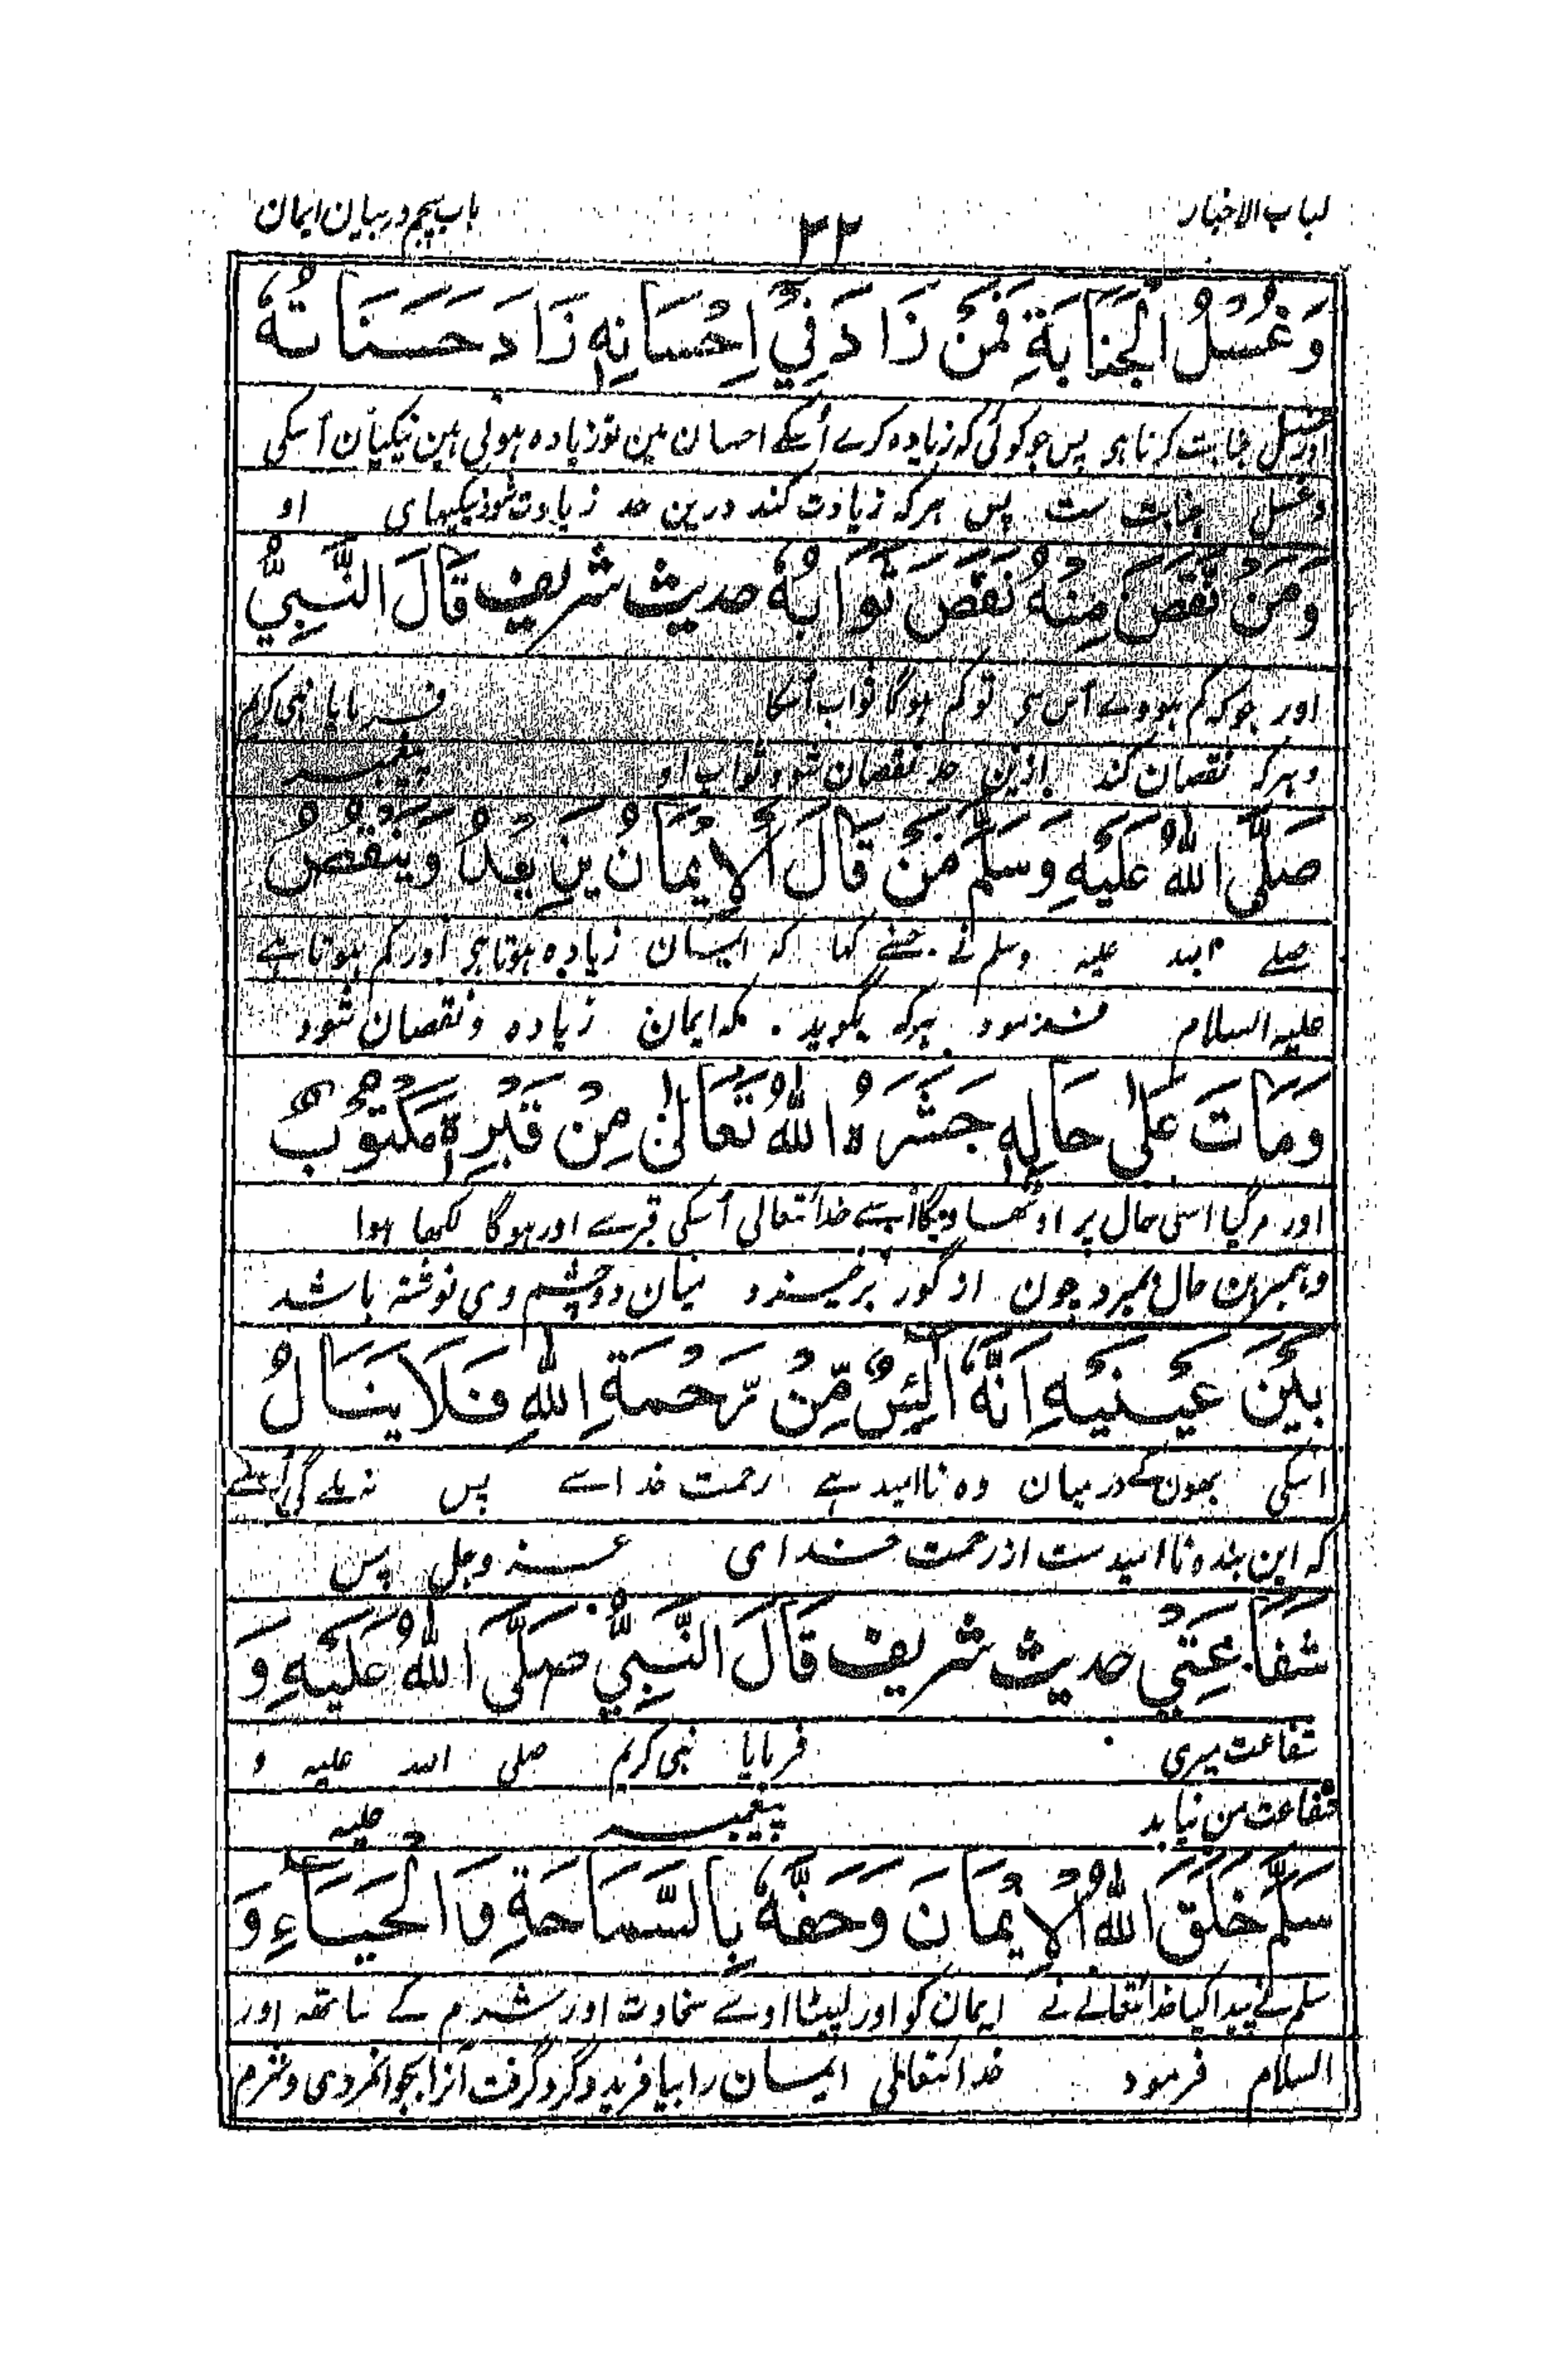 لباب الاخبار ۳۲ باب پنجم در بیان ایمان
وَغُسْلُ الْجَنَابَةِ فَمَنْ زَادَ فِيْ اِحْسَانِهٖ زَادَ حَسَنَاتُهٗ
اور غسل جنابت کرنا ہی پس جو کوئی کہ زیادہ کرے اُسکے احسان مین تو زیادہ ہوتی ہین نیکیان اُسکی
وغسل جنابت ست پس ہرکہ زیادت کند درین حد زیادت شود نیکیہای او
وَمَنْ نَقَصَ مِنْهُ نَقَصَ ثَوَابُهٗ حدیث شریف قَالَ النَّبِيُّ
اور جو کہ کم ہووے اُس سی تو کم ہوگا ثواب اُسکا فرمایا نبی کریم
وہرکہ نقصان کند ازین حد نقصان شود ثواب او پیغمبر
صَلَّى اللّٰهُ عَلَيْهِ وَسَلَّمَ مَنْ قَالَ الْاِيْمَانُ يَزِيْدُ وَيَنْقُصُ
صلے اللہ علیہ وسلم نے جسنے کہا کہ ایمان زیادہ ہوتا ہی اور کم ہوتا ہے
علیہ السلام فرمود ہرکہ بگوید کہ ایمان زیادہ ونقصان شود
وَمَاتَ عَلٰى حَالِهٖ حَشَرَهُ اللّٰهُ تَعَالٰى مِنْ قَبْرِهٖ مَكْتُوْبٌ
اور مرگیا اسی حال پر اوٹھاویگا اُسے خدا تعالی اُسکی قبر سے اور ہوگا لکھا ہوا
وہمبرین حال بمیرد چون از گور برخیزد میان دو چشم وی نوشتہ باشد
بَيْنَ عَيْنَيْهِ اَنَّهٗ اٰئِسٌ مِّنْ رَّحْمَةِ اللّٰهِ فَلَا يَنَالُ
اسکی بھون کے درمیان وہ ناامید ہے رحمت خدا سے پس نہ ملے گی اُسے
کہ این بندہ ناامیدست از رحمت خدای عز وجل پس
شَفَاعَتِيْ حدیث شریف قَالَ النَّبِيُّ صَلَّى اللّٰهُ عَلَيْهِ وَ
شفاعت میری فرمایا نبی کریم صلی اللہ علیہ و
شفاعت من نیابد پیغمبر علیہ
سَلَّمَ خَلَقَ اللّٰهُ الْاِيْمَانَ وَحَفَّهٗ بِالسَّمَاحَةِ وَالْحَيَاءِ وَ
سلم نے پیدا کیا خدا تعالے نے ایمان کو اور لپیٹا اوسے سخاوت اور شرم کے ساتھہ اور
السلام فرمود خدا تعالی ایمان را بیافرید و گرد گرفت آنرا بجوانمردی وشرم